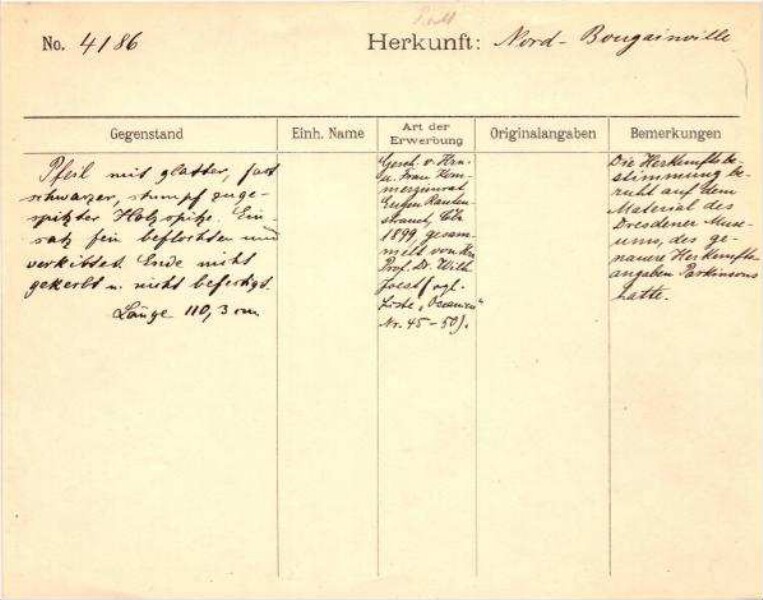 No. 4186
Herkunft: Nord-Bougainville
Gegenstand
Einh. Name
Art der
Erwerbung
Originalangaben
Bemerkungen
Pfeil mit glatter, fast
schwarzer, stumpf zuge-
spitzter Holzspitze. Ein-
satz fein beflochten und
verkittet. Ende nicht
gekerbt u. nicht befestigt.
Länge 110,3 cm.
Gesch. v. Hrn.
u. Frau Kom-
merzienrat
Eugen Rauten-
strauch, Cöln
1899, gesam-
melt von Hn
Prof. Dr. Wilh.
Joest (vgl.
Liste „Oceanien"
Nr. 45-50).
Die Herkunftsbe-
stimmung be-
ruht auf dem
Material des
Dresdener Muse-
ums, das ge-
nauere Herkunfts-
angaben Parkinsons
hatte.